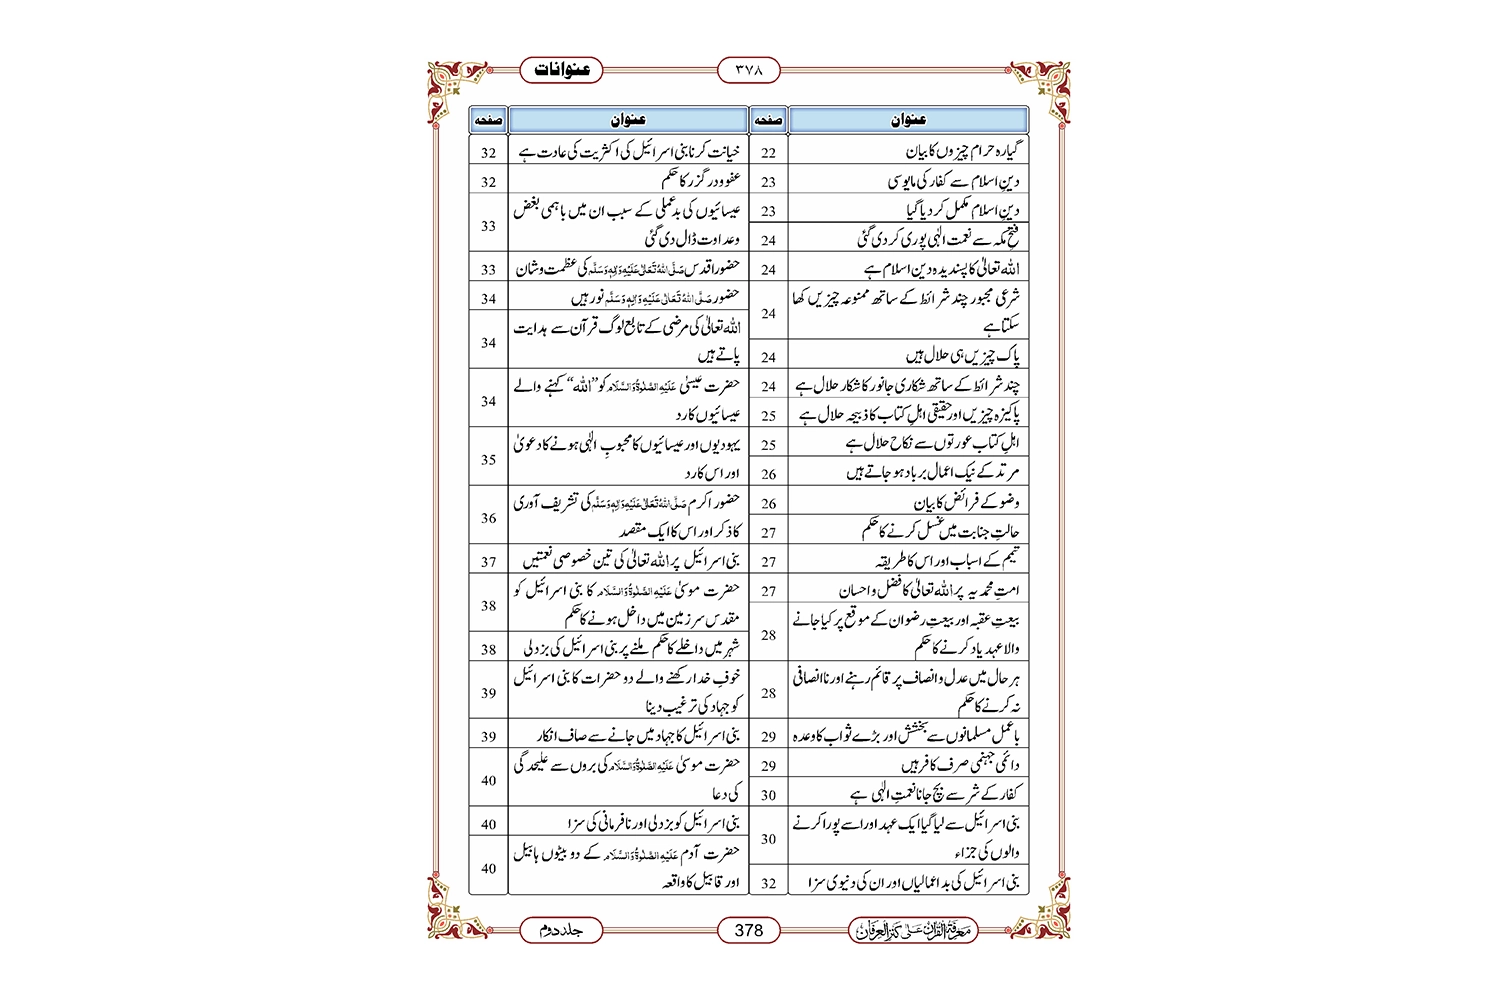 عنوانات
۳۷۸
عنوان صفحہ
گیارہ حرام چیزوں کا بیان 22
دینِ اسلام سے کفار کی مایوسی 23
دینِ اسلام مکمل کر دیا گیا 23
فتحِ مکہ سے نعمت الٰہی پوری کر دی گئی 24
اللہ تعالیٰ کا پسندیدہ دین اسلام ہے 24
شرعی مجبور چند شرائط کے ساتھ ممنوعہ چیزیں کھا
سکتا ہے 24
پاک چیزیں ہی حلال ہیں 24
چند شرائط کے ساتھ شکاری جانور کا شکار حلال ہے 24
پاکیزہ چیزیں اور حقیقی اہلِ کتاب کا ذبیحہ حلال ہے 25
اہلِ کتاب عورتوں سے نکاح حلال ہے 25
مرتد کے نیک اعمال برباد ہو جاتے ہیں 26
وضو کے فرائض کا بیان 26
حالتِ جنابت میں غسل کرنے کا حکم 27
تیمم کے اسباب اور اس کا طریقہ 27
امتِ محمدیہ پر اللہ تعالیٰ کا فضل و احسان 27
بیعتِ عقبہ اور بیعتِ رضوان کے موقع پر کیا جانے
والا عہد یاد کرنے کا حکم 28
ہر حال میں عدل و انصاف پر قائم رہنے اور ناانصافی
نہ کرنے کا حکم 28
باعمل مسلمانوں سے بخشش اور بڑے ثواب کا وعدہ 29
دائمی جہنمی صرف کافر ہیں 29
کفار کے شر سے بچ جانا نعمتِ الٰہی ہے 30
بنی اسرائیل سے لیا گیا ایک عہد اور اسے پورا کرنے
والوں کی جزاء 30
بنی اسرائیل کی بداعمالیاں اور ان کی دنیوی سزا 32
عنوان صفحہ
خیانت کرنا بنی اسرائیل کی اکثریت کی عادت ہے 32
عفو و درگزر کا حکم 32
عیسائیوں کی بدعملی کے سبب ان میں باہمی بغض
وعداوت ڈال دی گئی 33
حضور اقدس صَلَّی اللہُ تَعَالٰی عَلَیْہِ وَاٰلِہٖ وَسَلَّم کی عظمت و شان 33
حضور صَلَّی اللہُ تَعَالٰی عَلَیْہِ وَاٰلِہٖ وَسَلَّم نور ہیں 34
اللہ تعالیٰ کی مرضی کے تابع لوگ قرآن سے ہدایت
پاتے ہیں 34
حضرت عیسیٰ عَلَیْہِ الصَّلٰوۃُ وَالسَّلَام کو ”اللہ“ کہنے والے
عیسائیوں کا رد 34
یہودیوں اور عیسائیوں کا محبوبِ الٰہی ہونے کا دعویٰ
اور اس کا رد 35
حضور اکرم صَلَّی اللہُ تَعَالٰی عَلَیْہِ وَاٰلِہٖ وَسَلَّم کی تشریف آوری
کا ذکر اور اس کا ایک مقصد 36
بنی اسرائیل پر اللہ تعالیٰ کی تین خصوصی نعمتیں 37
حضرت موسیٰ عَلَیْہِ الصَّلٰوۃُ وَالسَّلَام کا بنی اسرائیل کو
مقدس سرزمین میں داخل ہونے کا حکم 38
شہر میں داخلے کا حکم ملنے پر بنی اسرائیل کی بزدلی 38
خوفِ خدا رکھنے والے دو حضرات کا بنی اسرائیل
کو جہاد کی ترغیب دینا 39
بنی اسرائیل کا جہاد میں جانے سے صاف انکار 39
حضرت موسیٰ عَلَیْہِ الصَّلٰوۃُ وَالسَّلَام کی بروں سے علیٰحدگی
کی دعا 40
بنی اسرائیل کو بزدلی اور نافرمانی کی سزا 40
حضرت آدم عَلَیْہِ الصَّلٰوۃُ وَالسَّلَام کے دو بیٹوں ہابیل
اور قابیل کا واقعہ 40
معرفۃ القرآن علی کنز العرفان
378
جلد دوم